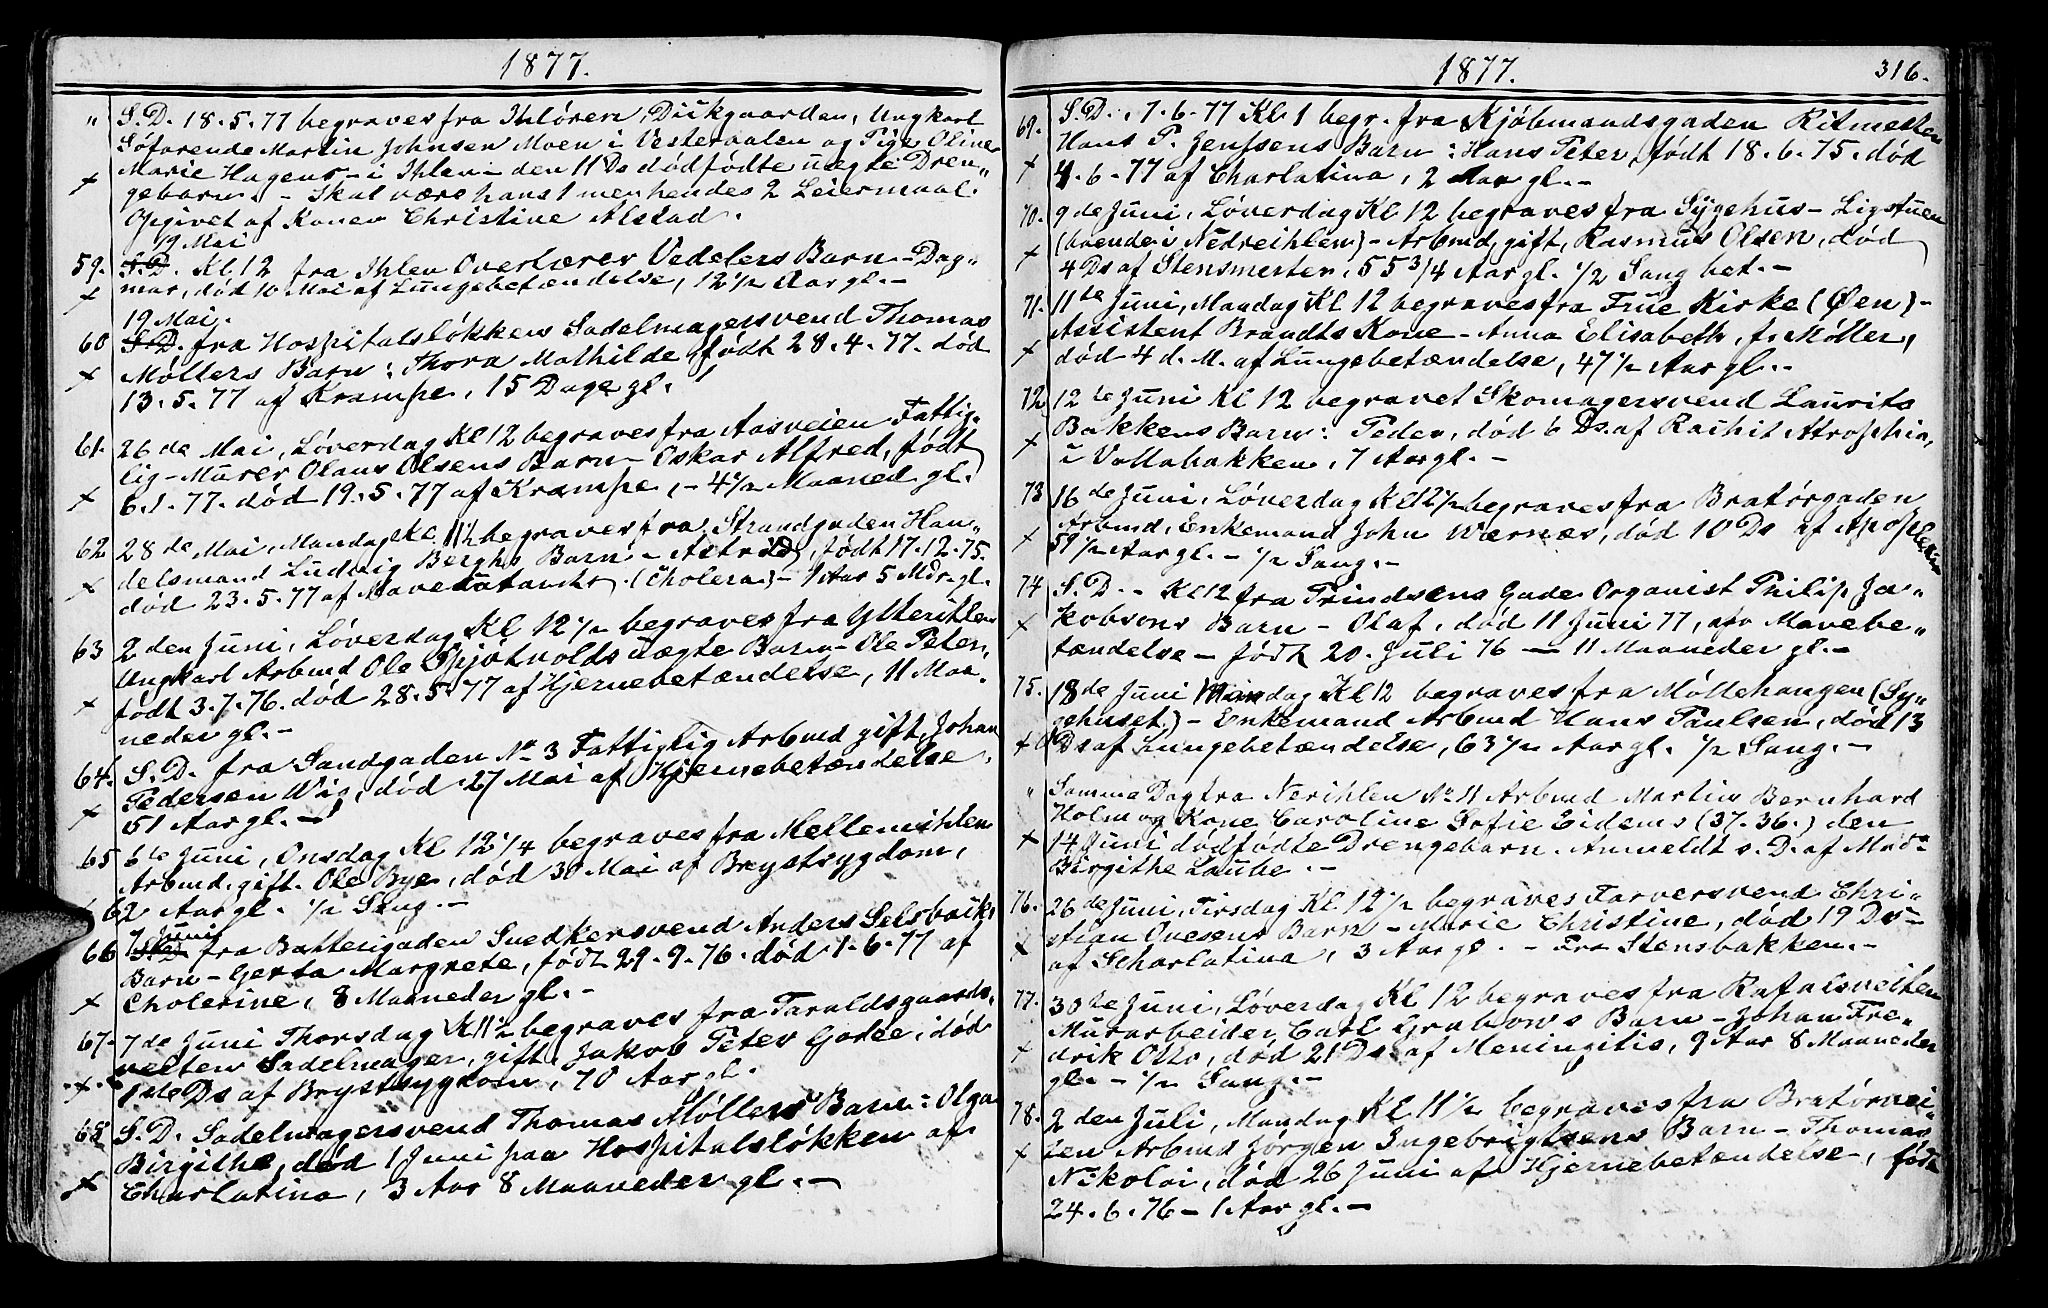 1877.
" S.D. 18.5.77 begraves fra Ihlören, Dückgaarden, Ungkarl
Söfarende Martin Johnsen Moen i Vesteraalen og Pige Oline
Marie Hagens - i Ihlen - den 11 Ds dödfödte uægte Dren„
x gebarn. - Skal være hans 1 men hendes 2 Leiermaal.
Opgivet af Konen Christine Alstad.
19 Mai
59. S.D. Kl. 12 fra Ihlen Overlærer Vedelers Barn - Dag„
x mar, död 10 Mai af Lungebetændelse, 12 1/2 Aar gl. -
19 Mai.
60 S.D. fra Hospitalslökken Sadelmagersvend Thomas
x Möllers Barn: Thora Mathilde, födt 28.4.77. död
13.5.77 af Krampe, 15 Dage gl.
61. 26 de Mai, Löverdag Kl 12 begraves fra Aasveien Fattig„
lig - Murer Olaus Olsens Barn - Oskar Alfred, födt
x 6.1.77. död 19.5.77 af Krampe, - 4 1/2 Maaned gl.
62. 28 de Mai, Mandag Kl. 11 1/2 begraves fra Strandgaden Han„
delsmand Ludvig Berghs Barn - Astrid, födt 17.12.75.
x död 23.5.77 af Mavekatarrh (Cholera) - 1 Aar 5 Mdr. gl.
63 2 den Juni, Löverdag Kl 12 1/2 begraves fra Ytterihlen
Ungkarl Arbmd Ole Spjötvolds uægte Barn - Ole Peter,
x födt 3.7.76. död 28.5.77 af Hjernebetændelse, 11 Maa„
neder gl. -
64. S.D. fra Sandgaden No 3 Fattiglig Arbmd gift, Johan
Pedersen Wig, död 27 Mai af Hjernebetændelse,
x 51 Aar gl. -
65 6 te Juni, Onsdag Kl 12 1/4 begraves fra Mellemihlen
Arbmd. gift. Ole Bye, död 30 Mai af Brystsygdom,
62 Aar gl. 1/2 Sang. -
7 Juni
66 S.D. fra Batterigaden Snedkersvend Anders Selsbaks
Barn - Gerta Margrete, födt 29.9.76. död 1.6.77 af
x Cholerine, 8 Maaneder gl. -
67. 7 de Juni Thorsdag Kl 11 1/2 begraves fra Taraldsgaards„
veiten Sadelmager, gift, Jakob Peter Godée, död
x 1 ste Ds af Brystsygdom, 70 Aar gl.
68 S.D. Sadelmagersvend Thomas Möllers Barn: Olga
Birgithe, död 1 Juni paa Hospitalslökken af
x Charlatina, 3 Aar 8 Maaneder gl. -
1877. 316.
69. S.D. 7.6.77 Kl. 1 begr. fra Kjöbmandsgaden Ritmester
Hans P. Jenssens Barn: Hans Peter, födt 18.6.75. död
x 4.6.77 af Charlatina, 2 Aar gl. -
70. 9 de Juni, Löverdag Kl 12 begraves fra Sygehus - Ligstuen
(boende i Nedreihlen) - Arbmd, gift, Rasmus Olsen, död
x 4 Ds af Stensmerter, 55 3/4 Aar gl. 1/2 Sang bet. -
71. 11 te Juni, Mandag Kl 12 begraves fra Frue Kirke (Öen) -
Assistent Brandts Kone - Anna Elisabeth, f. Möller,
x död 4 d. M. af Lungebetændelse, 47 1/2 Aar gl. -
72 12 te Juni Kl 12 begravet Skomagersvend Laurits
Bakkens Barn: Peder, död 6 Ds. af Rachit Atrophia,
x i Vollabakken, 7 Aar gl. -
73 16 de Juni, Löverdag Kl 12 1/2 begraves fra Bratörgaden
Arbmd, Enkemand John Wærnes, död 10 Ds af Apoplexi
x 59 1/2 Aar gl. - 1/2 Sang. -
74 S.D. - Kl 12 fra Prindsens Gade Organist Philip Ja„
x kobsons Barn - Olaf, död 11 Juni 77, Mavebe„
tændelse - födt 20. Juli 76 - 11 Maaneder gl. -
75. 18 de Juni Mandag Kl 12 begraves fra Möllehaugen (Sy„
gehuset) - Enkemand Arbmd Hans Paulsen, död 13
x Ds af Lungebetændelse, 63 1/2 Aar gl. 1/2 Sang. -
" Samma Dag fra Nerihlen No 11 Arbmd Martin Bernhard
Holm og Kone Caroline Sofie Eidems (37.36.) den
x 14 Juni dödfödte Drengebarn. Anmeldt s.D. af Mad
Birgithe Laube. -
76. 26 de Juni, Tirsdag Kl. 12 1/2 begraves Farversvend Chri„
stian Ovesens Barn - Marie Christine, död 19 Ds -
x af Scharlatina, 3 Aar gl. - Fra Stensbakken. -
77. 30 te Juni, Löverdag Kl 12 begraves fra Rafalsveiten
Murarbeider Carl Grabows Barn - Johan Fre„
x drik Otto, död 21 Ds af Meningitis, 9 Aar 8 Maaneder
gl. - 1/2 Sang. -
78. 2 den Juli, Mandag Kl 11 1/2 begraves fra Bratörvei„
x ten Arbmd Jörgen Ingebrigtsens Barn - Thomas
Nikolai, död 26 Juni af Hjernebetændelse, födt
24.6.76 - 1 Aar gl. -